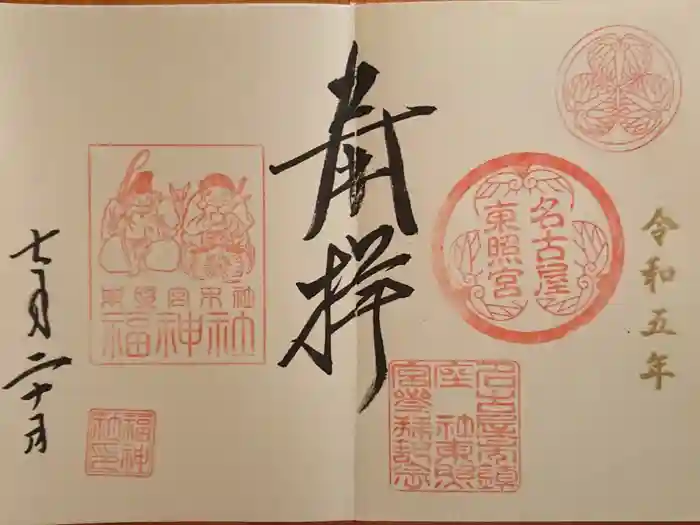 令和五年
名古屋
東照宮
名古屋市鎮
座 社東照
宮参拝記念
奉拝
東照宮末社
福神社
福神
社印
七月二十日